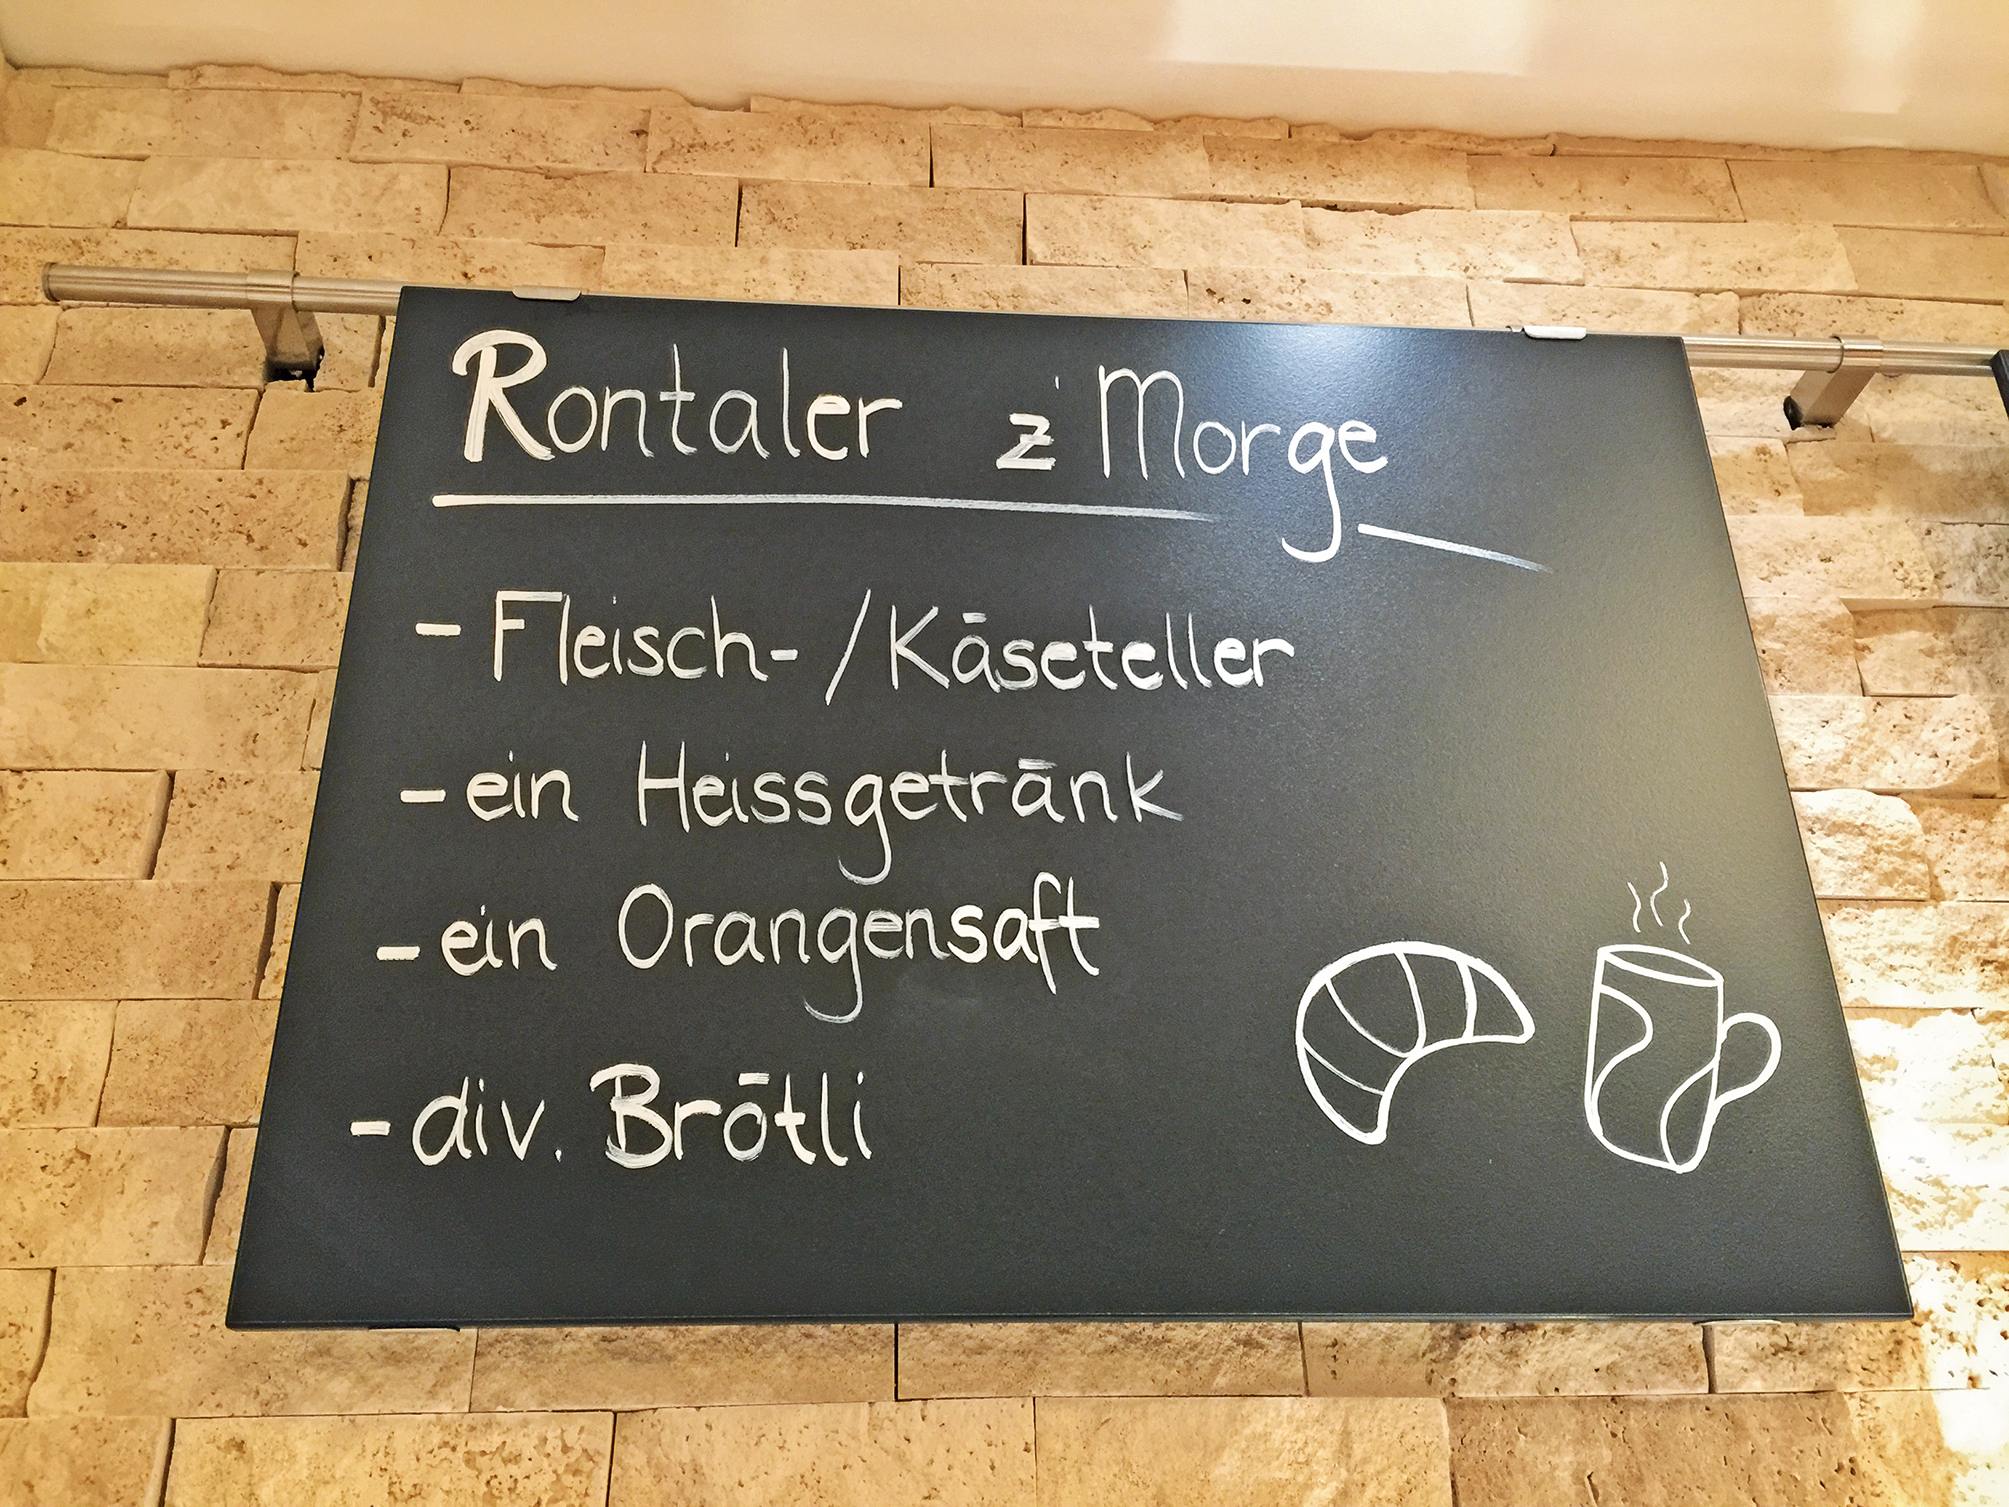 Rontaler z'Morge
- Fleisch- / Käseteller
- ein Heissgetränk
- ein Orangensaft
- div. Brötli